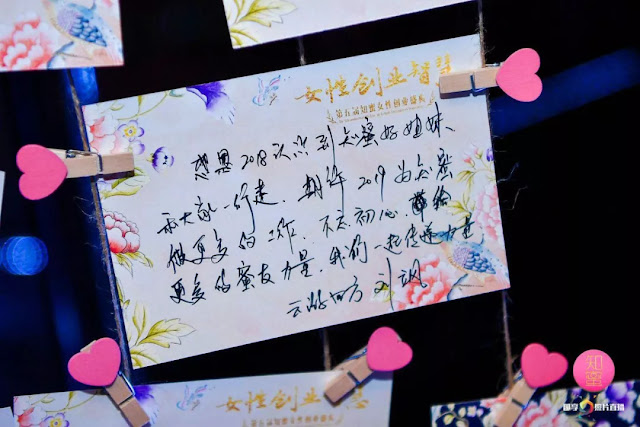 女性创业智慧
第五届知蜜女性创业盛典
感恩2018认识到知蜜好姐妹、
和大家一行走,期许2019为知蜜
做更多的工作,不忘初心,带给
更多的蜜友力量,我们一起传递力量,
云游四方
女性创业
第五届知蜜女性创业盛典
知蜜
照片直播